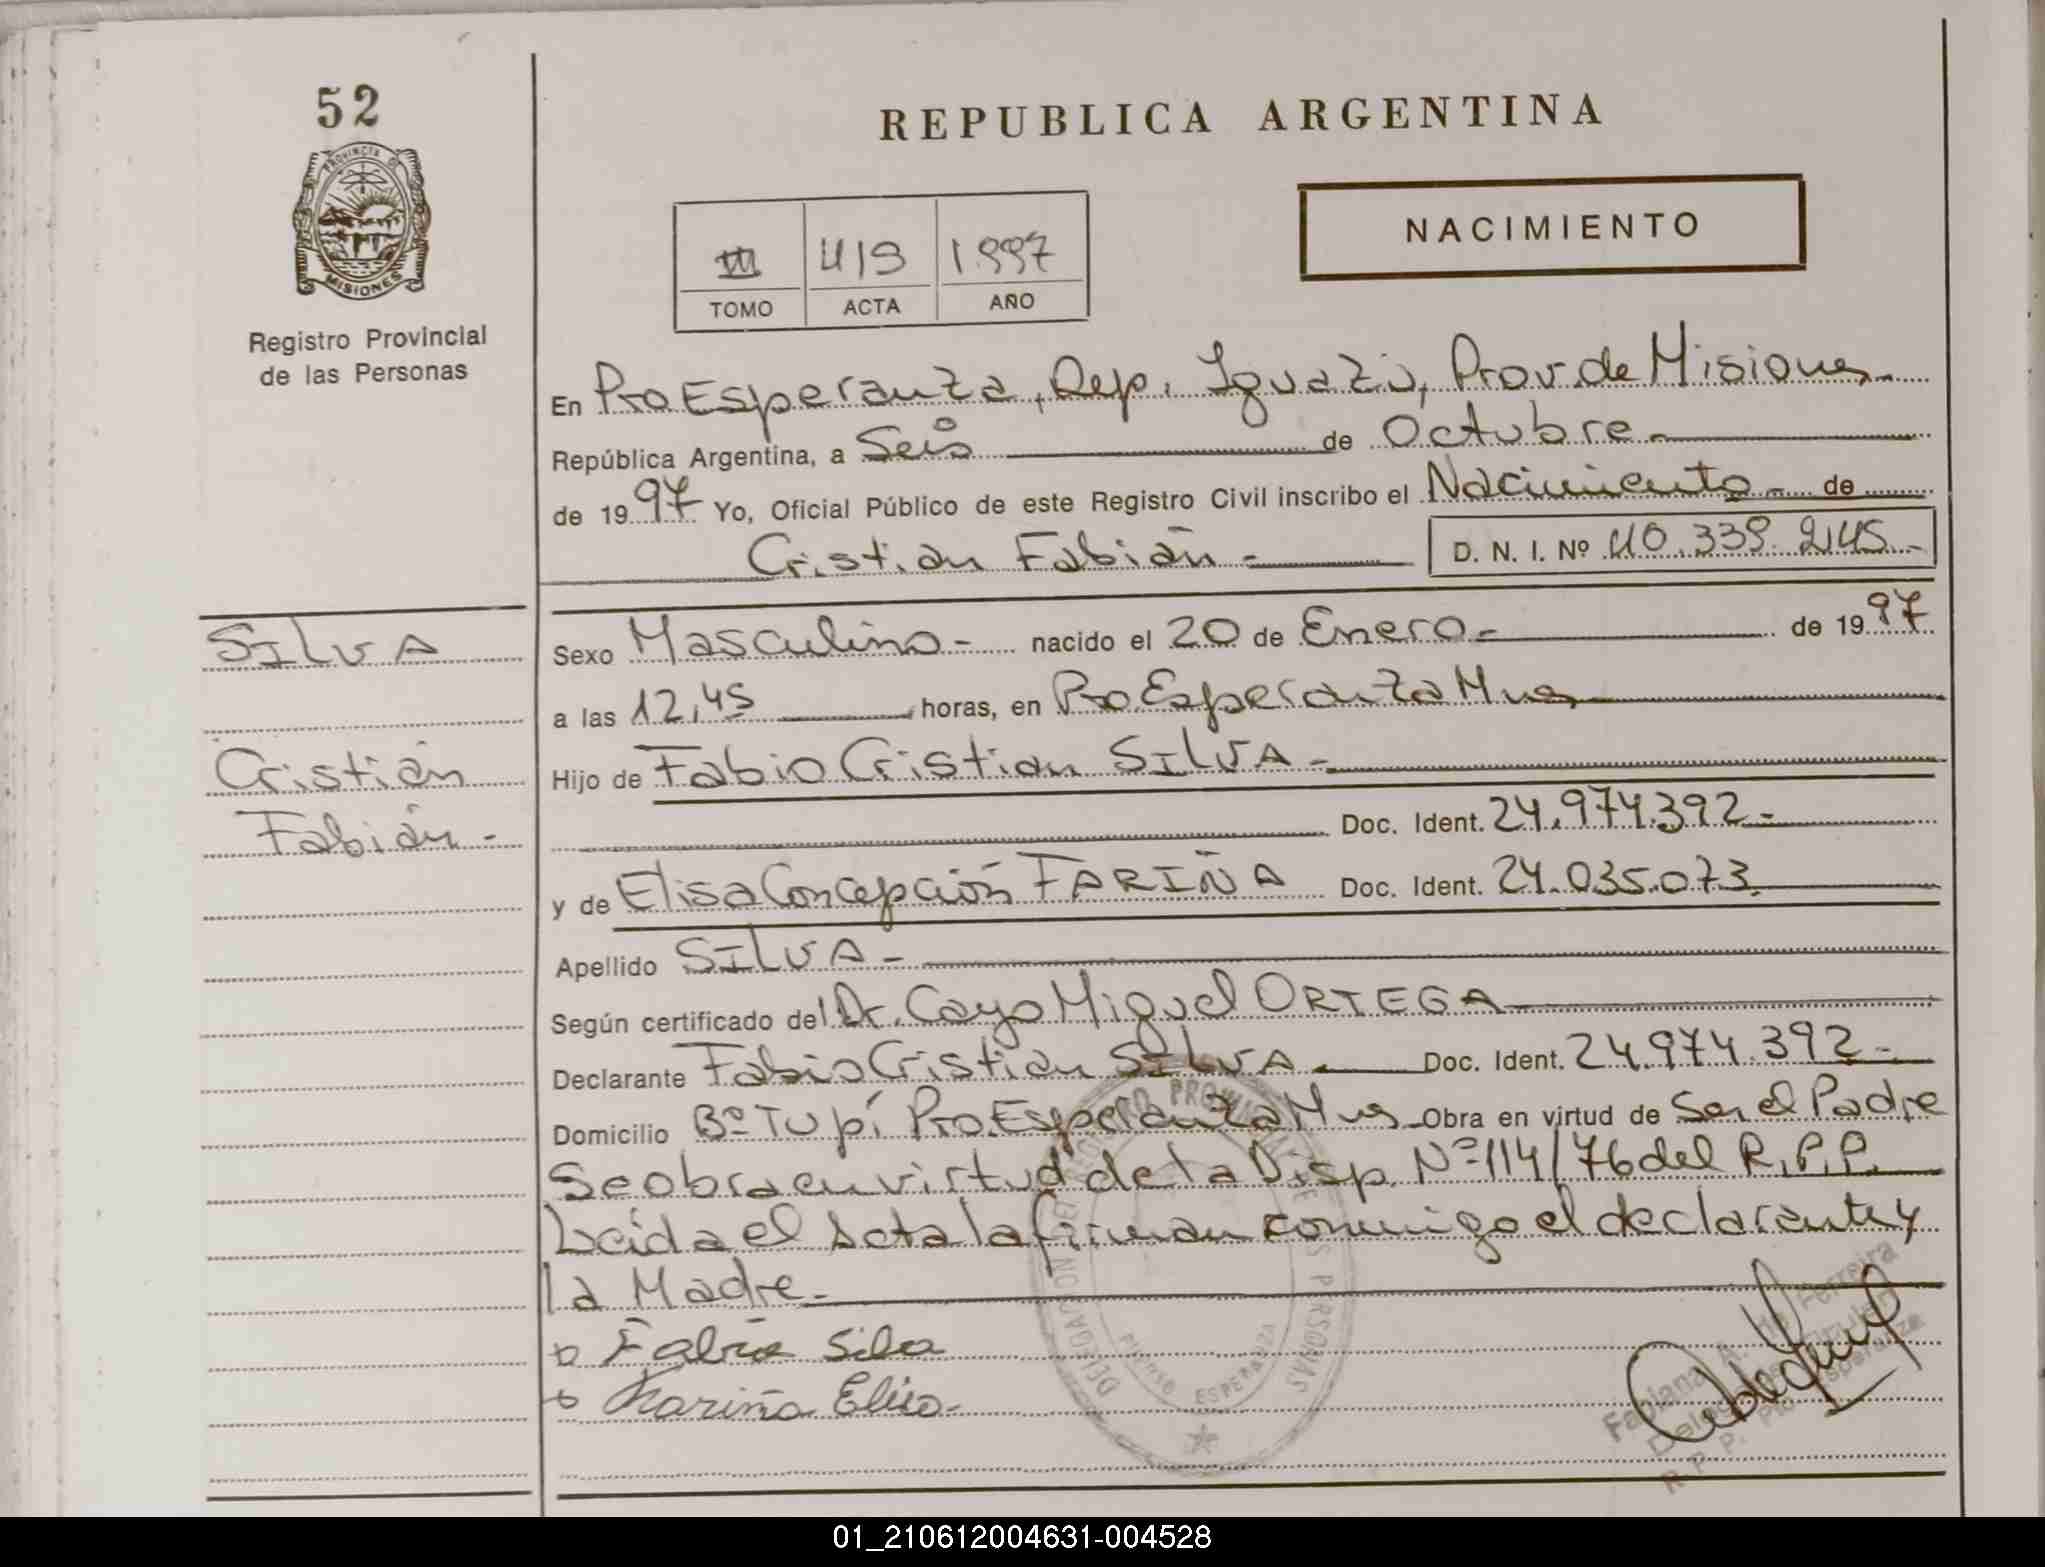 52
PROVINCIA DE
MISIONES
Registro Provincial
de las Personas
REPUBLICA ARGENTINA
NACIMIENTO
III 419 1997
TOMO ACTA AÑO
En Pto Esperanza, Dep. Iguazú, Prov. de Misiones
República Argentina, a Seis de Octubre
de 1997 Yo, Oficial Público de este Registro Civil inscribo el Nacimiento de
Cristian Fabián D. N. I. Nº 40.339.245
SILVA
Cristián
Fabián
Sexo Masculino nacido el 20 de Enero de 1997
a las 12,45 horas, en Pto Esperanza Mnes
Hijo de Fabio Cristian SILVA
Doc. Ident. 24.974.392
y de Elisa Concepción FARIÑA Doc. Ident. 24.035.073
Apellido SILVA
Según certificado del Dr. Cayo Miguel ORTEGA
Declarante Fabio Cristian SILVA Doc. Ident. 24.974.392
Domicilio Bº Tupí Pto. Esperanza Mnes Obra en virtud de Ser el Padre
Se obra en virtud de la Disp. Nº 114/76 del R.P.P.
Leída el Acta la firman conmigo el declarante y
la Madre
Fabio Silva
Fariña Elisa
DELEGACION DEL REGISTRO PROVINCIAL DE LAS PERSONAS
PUERTO ESPERANZA
Fabiana A. Ferreira
R. P. P. Pto Esperanza
01_210612004631-004528